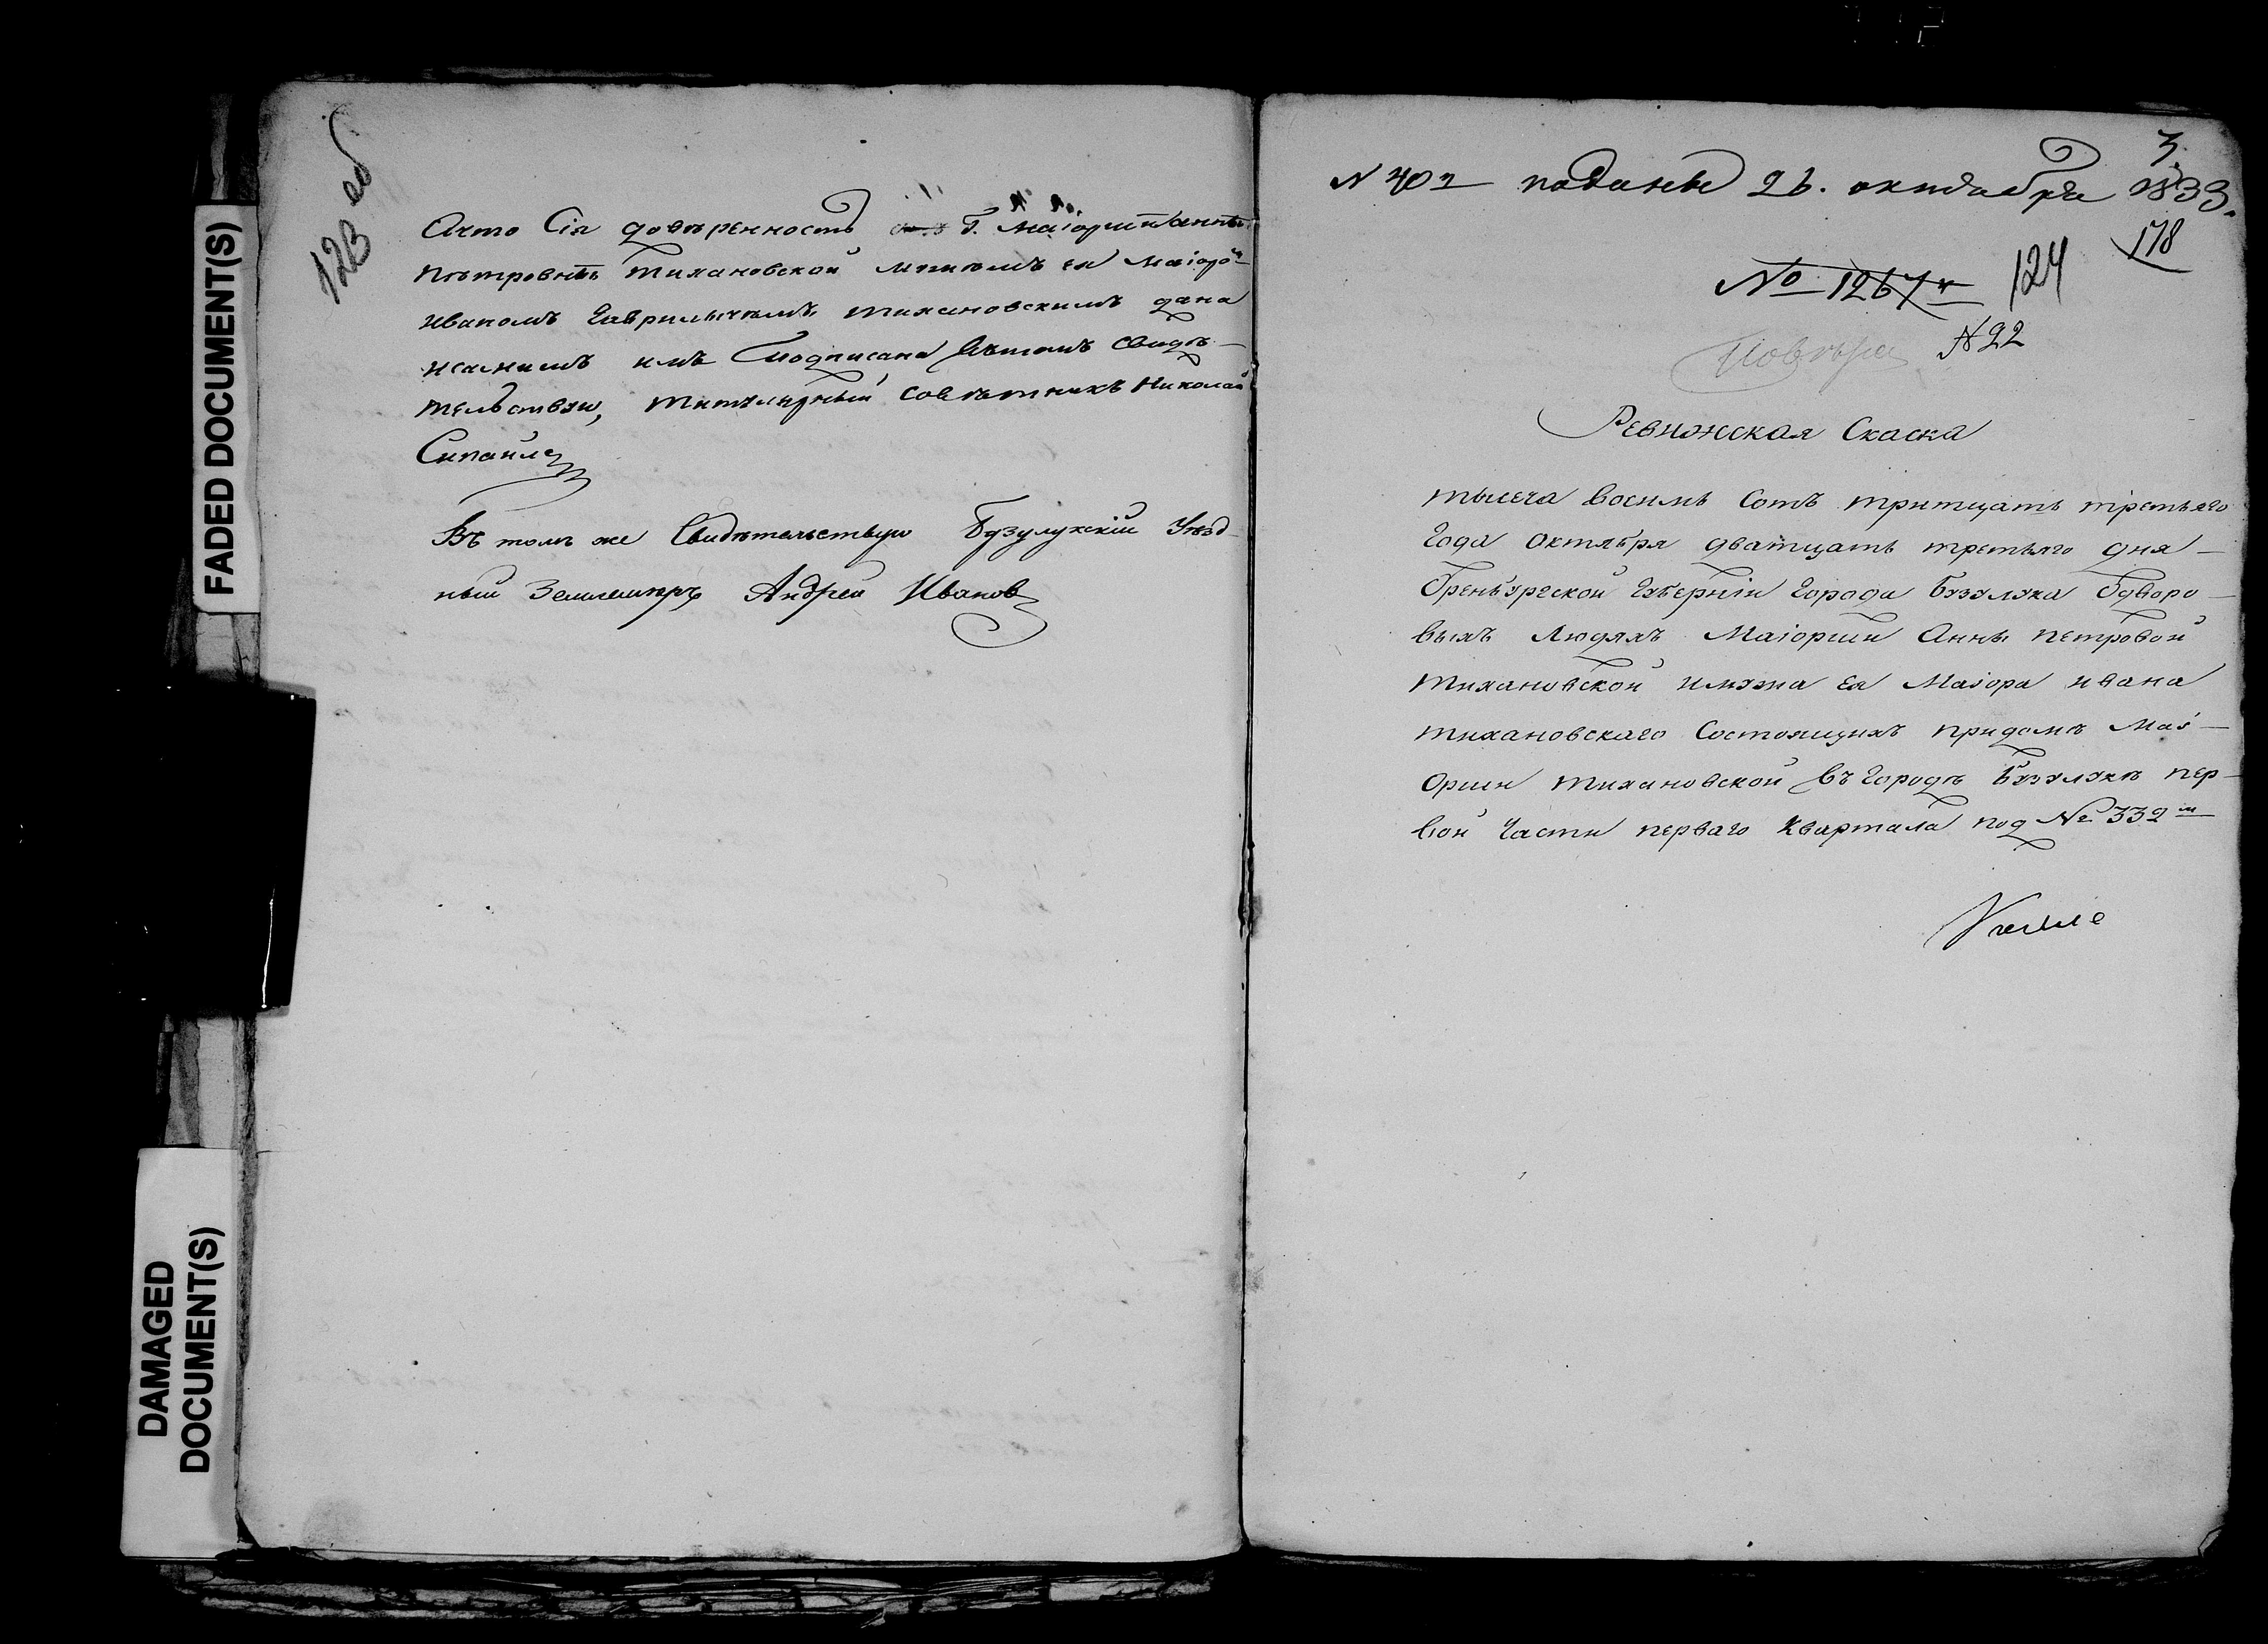 123 об
Ачто Сія довѣренность Г. маіоршѣ аннѣ
пѣтровнѣ тихановской мужемъ ея маіоро
иваномъ Гавриловичемъ тихановскимъ дана
исамимъ имъ подписана вътомъ свидѣ-
тельствую, титулярный совѣтникъ Николай
Въ томъ же Свидѣтельствую Бузулукскій Уѣзд-
ный Землемѣръ Андрей Иванов
3.
N 402 поданы 26. октября 1833.
178
№ 1267 124
N 22
Повѣрена
Ревижская Скаска
тысеча восимь Сотъ тритцать третьяго
Года Октября дватцать третьяго дня —
Оренбургской Губерніи Города Бузулука Одворо-
выхъ Людяхъ Маіорши Анны петровой
тихановской имужа ея Маіора ивана
тихановскаго Состоящихъ придомѣ Маі-
Орши тихановской въ Городѣ Бузулукѣ пер-
вой Части перваго Квартала под № 332м
FADED DOCUMENT(S)
DAMAGED
DOCUMENT(S)